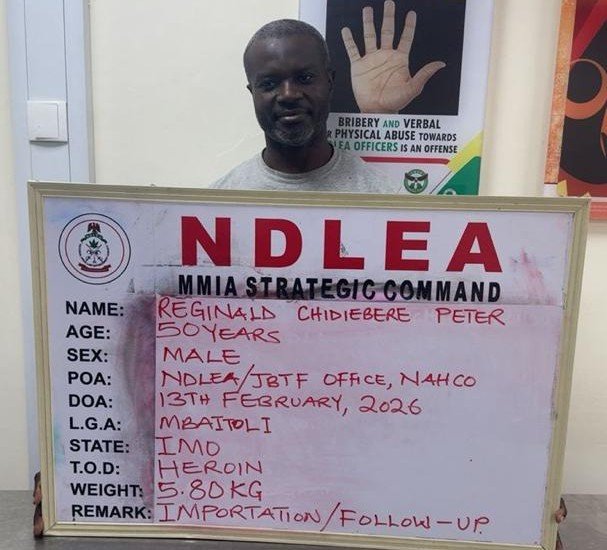 BRIBERY AND VERBAL
PHYSICAL ABUSE TOWARDS
OFFICERS IS AN OFFENSE
NDLEA
MMIA STRATEGIC COMMAND
NAME: REGINALD CHIDIEBERE PETER
AGE: 50 YEARS
SEX: MALE
POA: NDLEA/JBTF OFFICE, NAHCO
DOA: 13TH FEBRUARY, 2026
L.G.A: MBAITOLI
STATE: IMO
T.O.D: HEROIN
WEIGHT: 5.80KG
REMARK: IMPORTATION/FOLLOW-UP